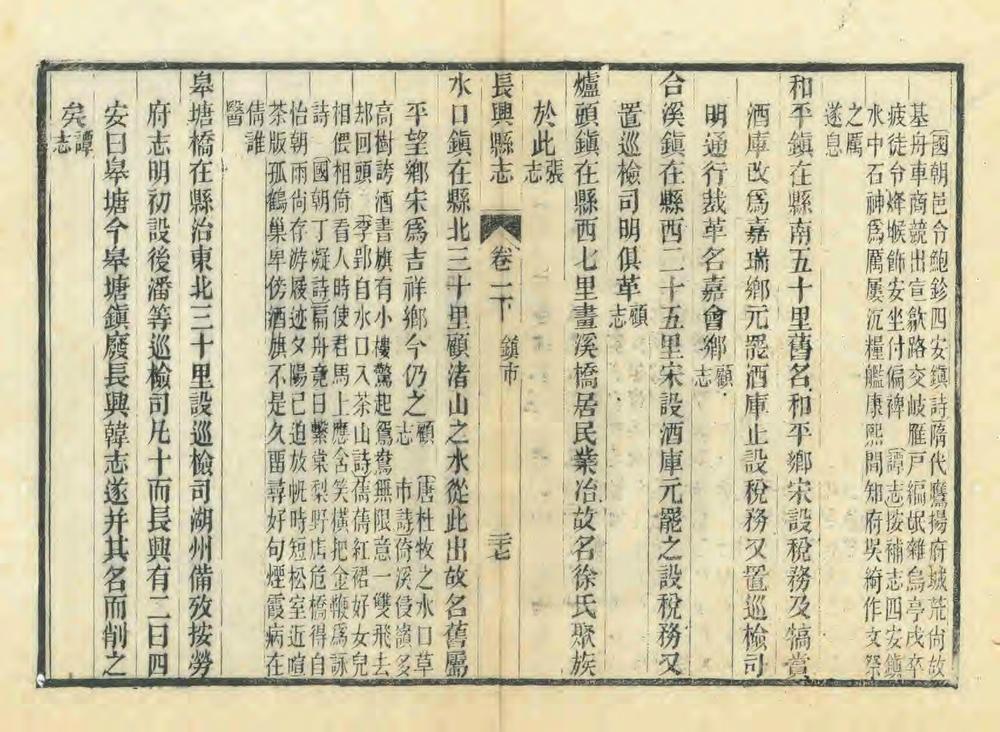 國朝邑令鮑鉁四安鎮詩隋代鷹揚府城荒尚故
基舟車商競出宣歙路交岐雁戸編氓雜烏亭戍卒
疲徒台烽堠飾安坐付偏裨譚志按補志四安鎮
水中石神爲厲屢沉糧艦康熙間知府吳綺作文祭
之厲
遂息
和平鎮在縣南五十里舊名和平鄉宋設稅務及犒賞
酒庫改爲嘉瑞鄉元罷酒庫止設稅務又置巡檢司
明通行裁革名嘉會鄉顧志
合溪鎮在縣西二十五里宋設酒庫元罷之設稅務又
置巡檢司明俱革顧志
爐頭鎮在縣西七里畫溪橋居民業冶故名徐氏聚族
於此張志
長興縣志 卷一下 鎮市 三七
水口鎮在縣北三十里顧渚山之水從此出故名舊屬
平望鄉宋爲吉祥鄉今仍之顧志
唐杜牧之水口草
市詩倚溪侵嶺多
高樹誇酒書旗有小樓驚起鴛鴦無限意一雙飛去
却回頭 李郢自水口入茶山詩蒨蒨紅裙好女兒
相偎相倚看人時使君馬上應含笑橫把金鞭爲詠
詩 國朝丁凝詩扁舟竟日繫棠梨野店危橋得自
怡朝雨尙存游屐迹夕陽已迫放帆時短松室近喧
茶版孤鶴巢卑傍酒旗不是久畱尋好句煙霞病在
倩誰
醫
皋塘橋在縣治東北三十里設巡檢司湖州備攷按勞
府志明初設後潘等巡檢司凡十而長興有二曰四
安曰皋塘今皋塘鎮廢長興韓志遂并其名而削之
矣譚志